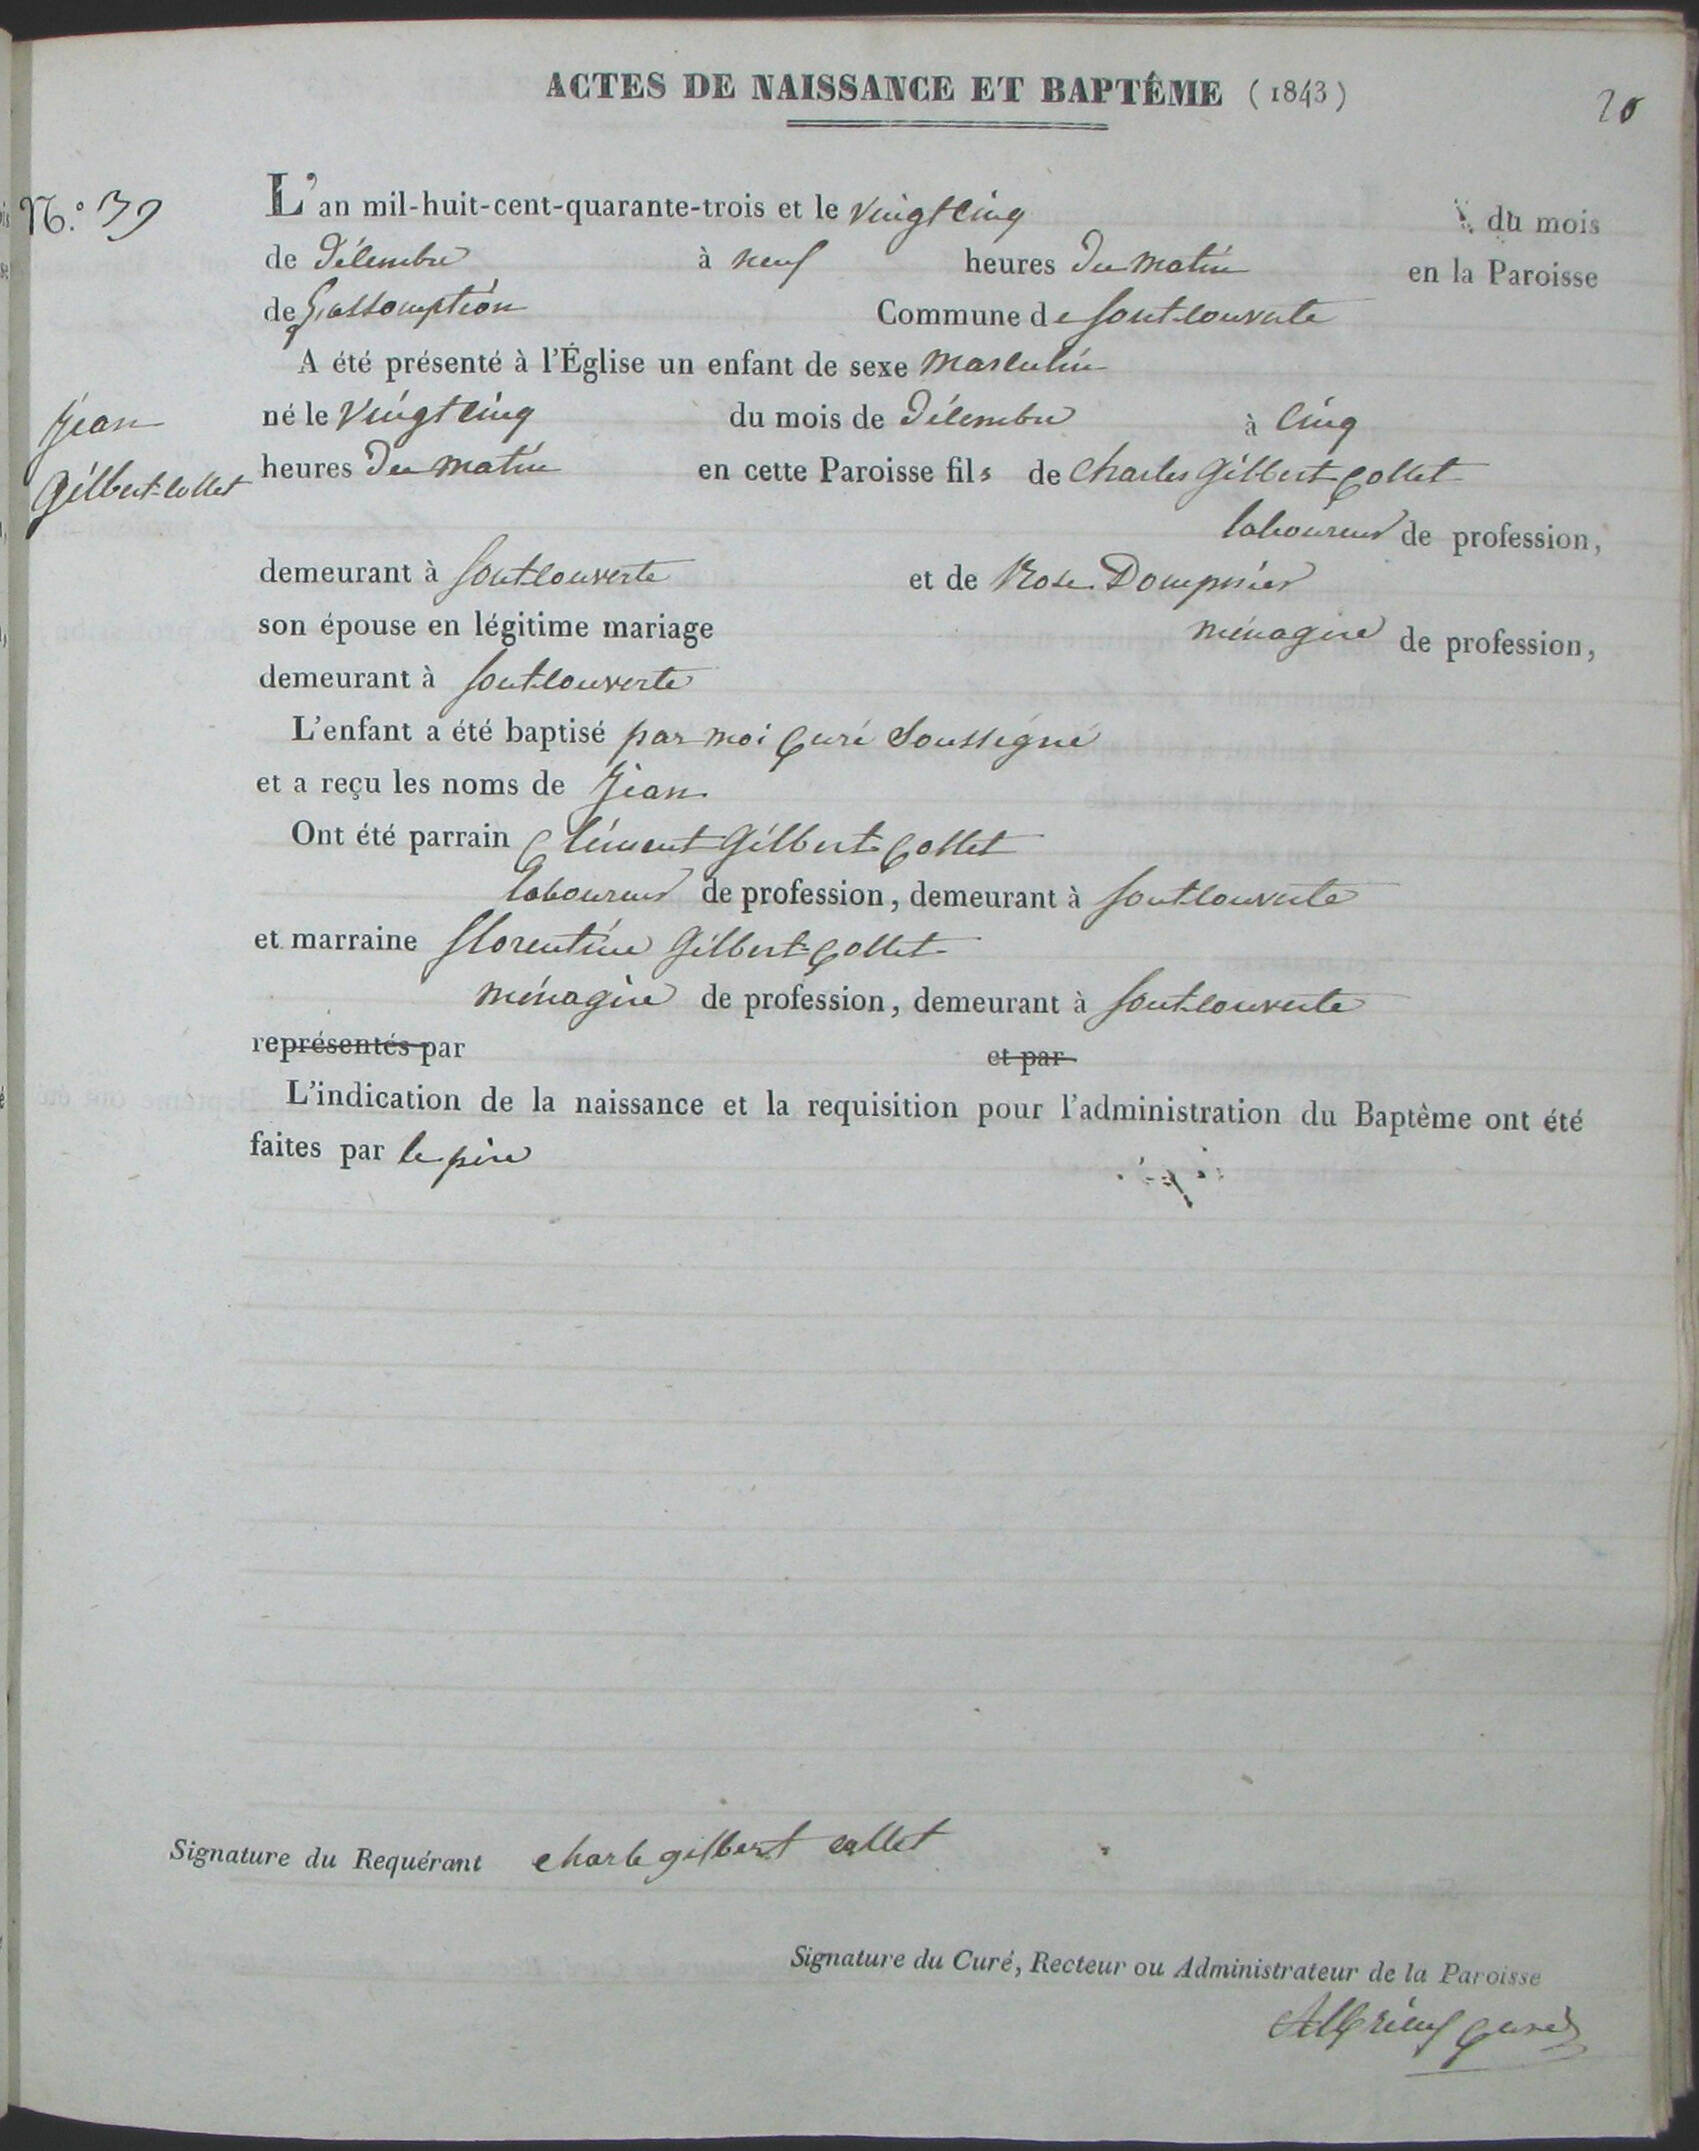 ACTES DE NAISSANCE ET BAPTÊME (1843)
20
N.° 39
L'an mil-huit-cent-quarante-trois et le vingt cinq du mois
de Décembre à neuf heures du matin en la Paroisse
de L'assomption Commune de font-couverte
A été présenté à l'Église un enfant de sexe masculin
Jean
Gilbert-collet
né le vingt cinq du mois de Décembre à cinq
heures du matin en cette Paroisse fils de Charles Gilbert-Collet
laboureur de profession,
demeurant à font-couverte et de Rose Dompnier
son épouse en légitime mariage ménagère de profession,
demeurant à font-couverte
L'enfant a été baptisé par moi Curé soussigné
et a reçu les noms de Jean
Ont été parrain Clément Gilbert-Collet
laboureur de profession, demeurant à fontcouverte
et marraine florentine Gilbert-Collet
ménagère de profession, demeurant à font-couverte
représentés par et par
L'indication de la naissance et la requisition pour l'administration du Baptème ont été
faites par le père
Signature du Requérant charle gilbert collet
Signature du Curé, Recteur ou Administrateur de la Paroisse
curé